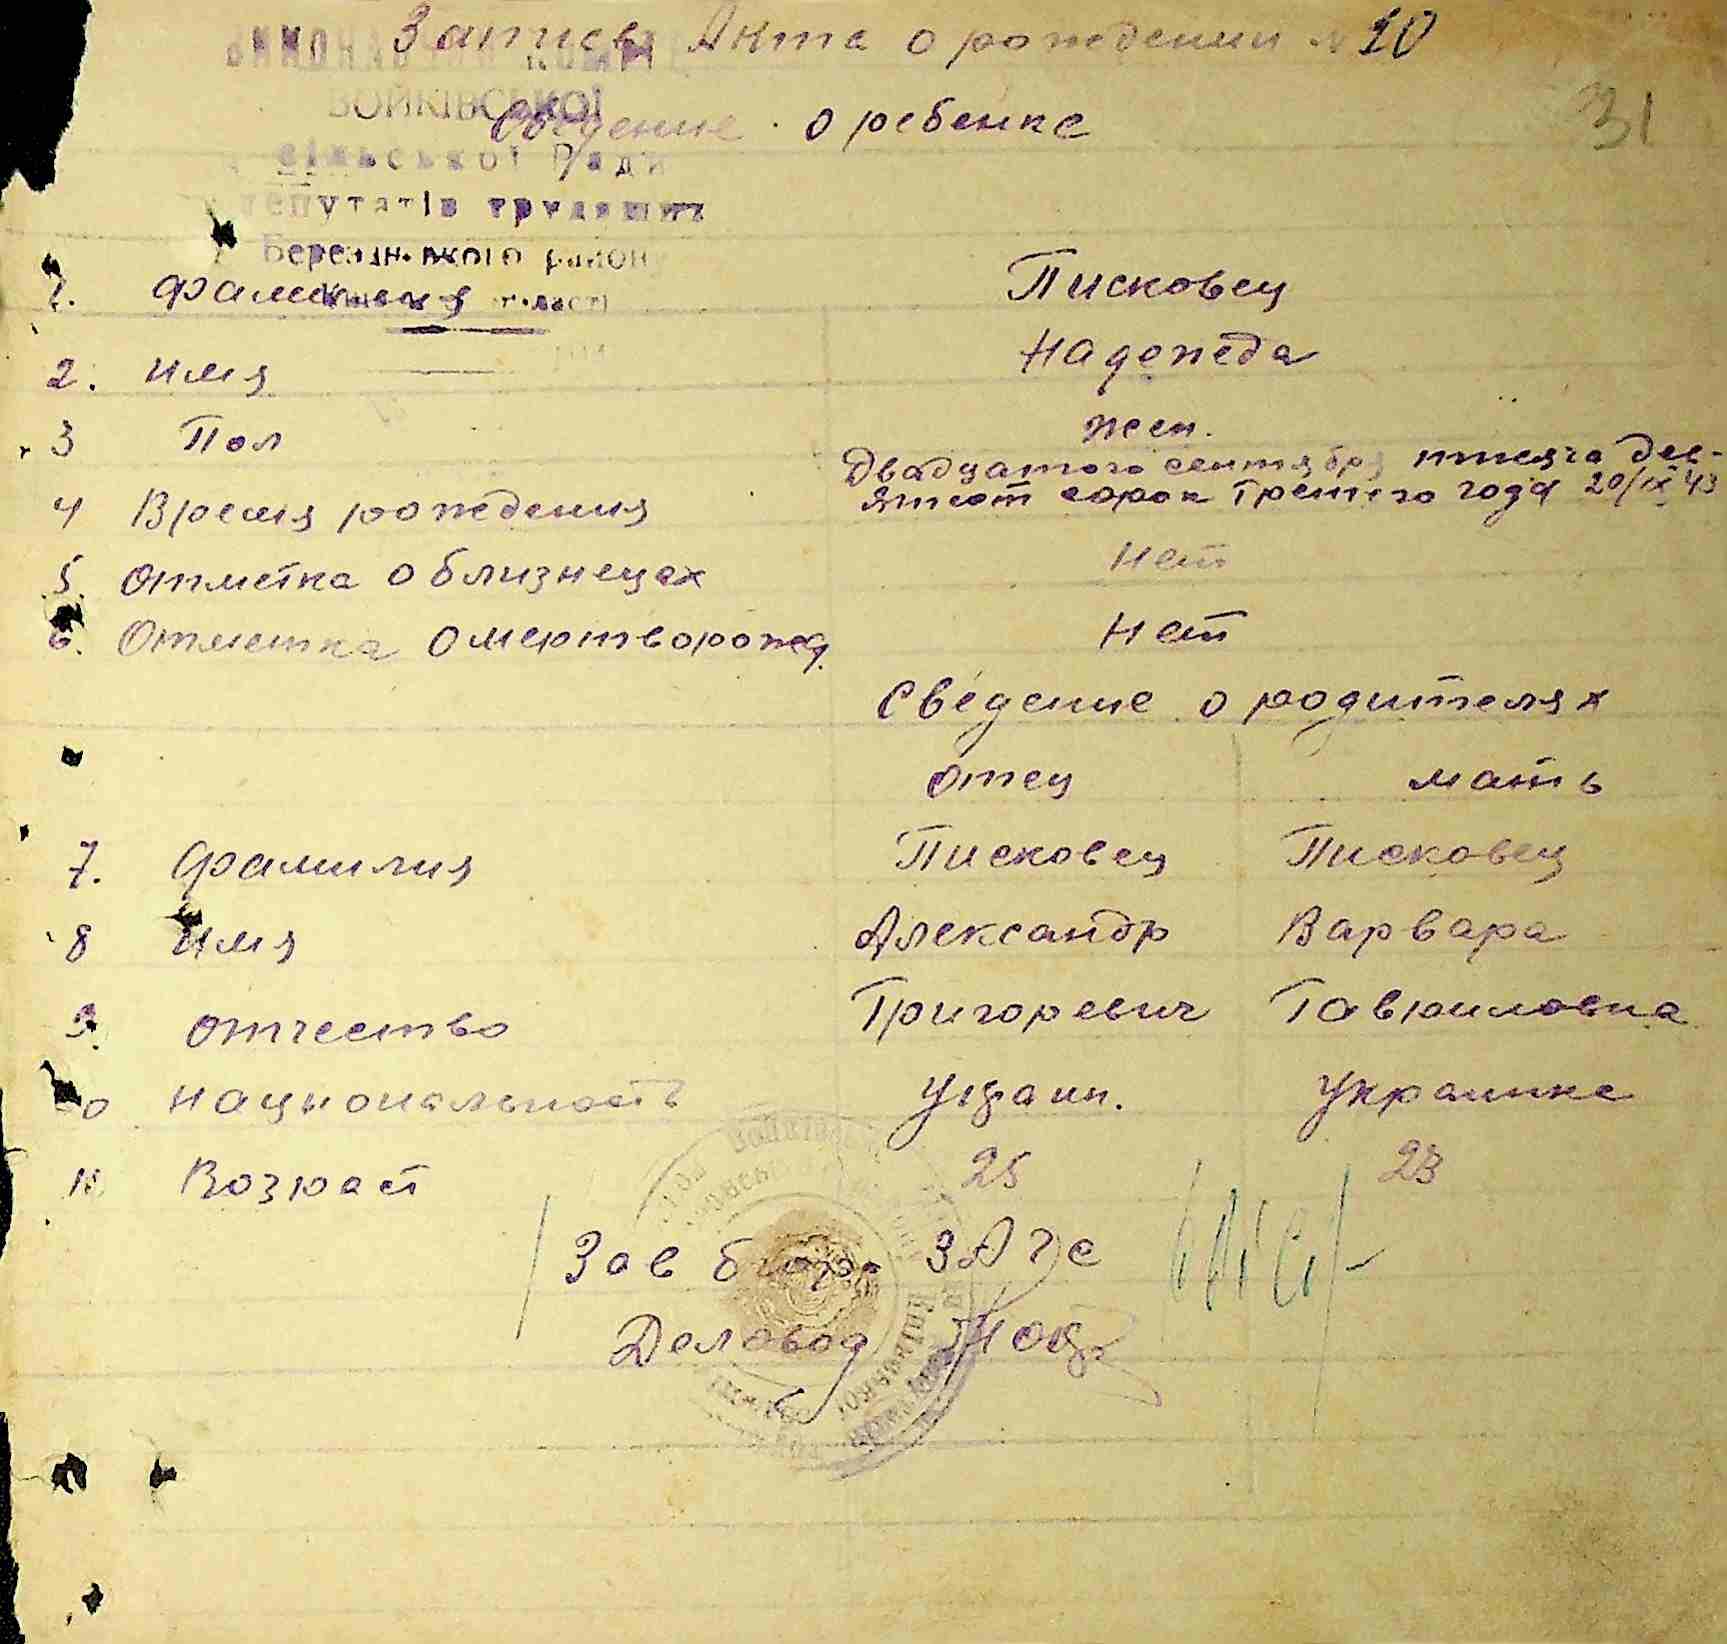 Запись Акта о рождении № 10
ВОЙКІВСЬКОЇ
Сведение о ребенке
31
сільської Ради
депутатів трудящих
Березанського району
1. Фамилия Писковец
2. Имя Надежда
3 Пол жен.
4 Время рождения Двадцатого сентября тысяча дев-
ятсот сорок третего года 20/IX 43
5. Отметка о близнецах Нет
6. Отметка о мертворожд. Нет
Сведение о родителях
отец мать
7. Фамилия Писковец Писковец
8 Имя Александр Варвара
9. Отчество Григоревич Гавриловна
10 Национальность Украин. Украинка
11 Возраст 25 23
Зав бюро ЗАГС
Деловод